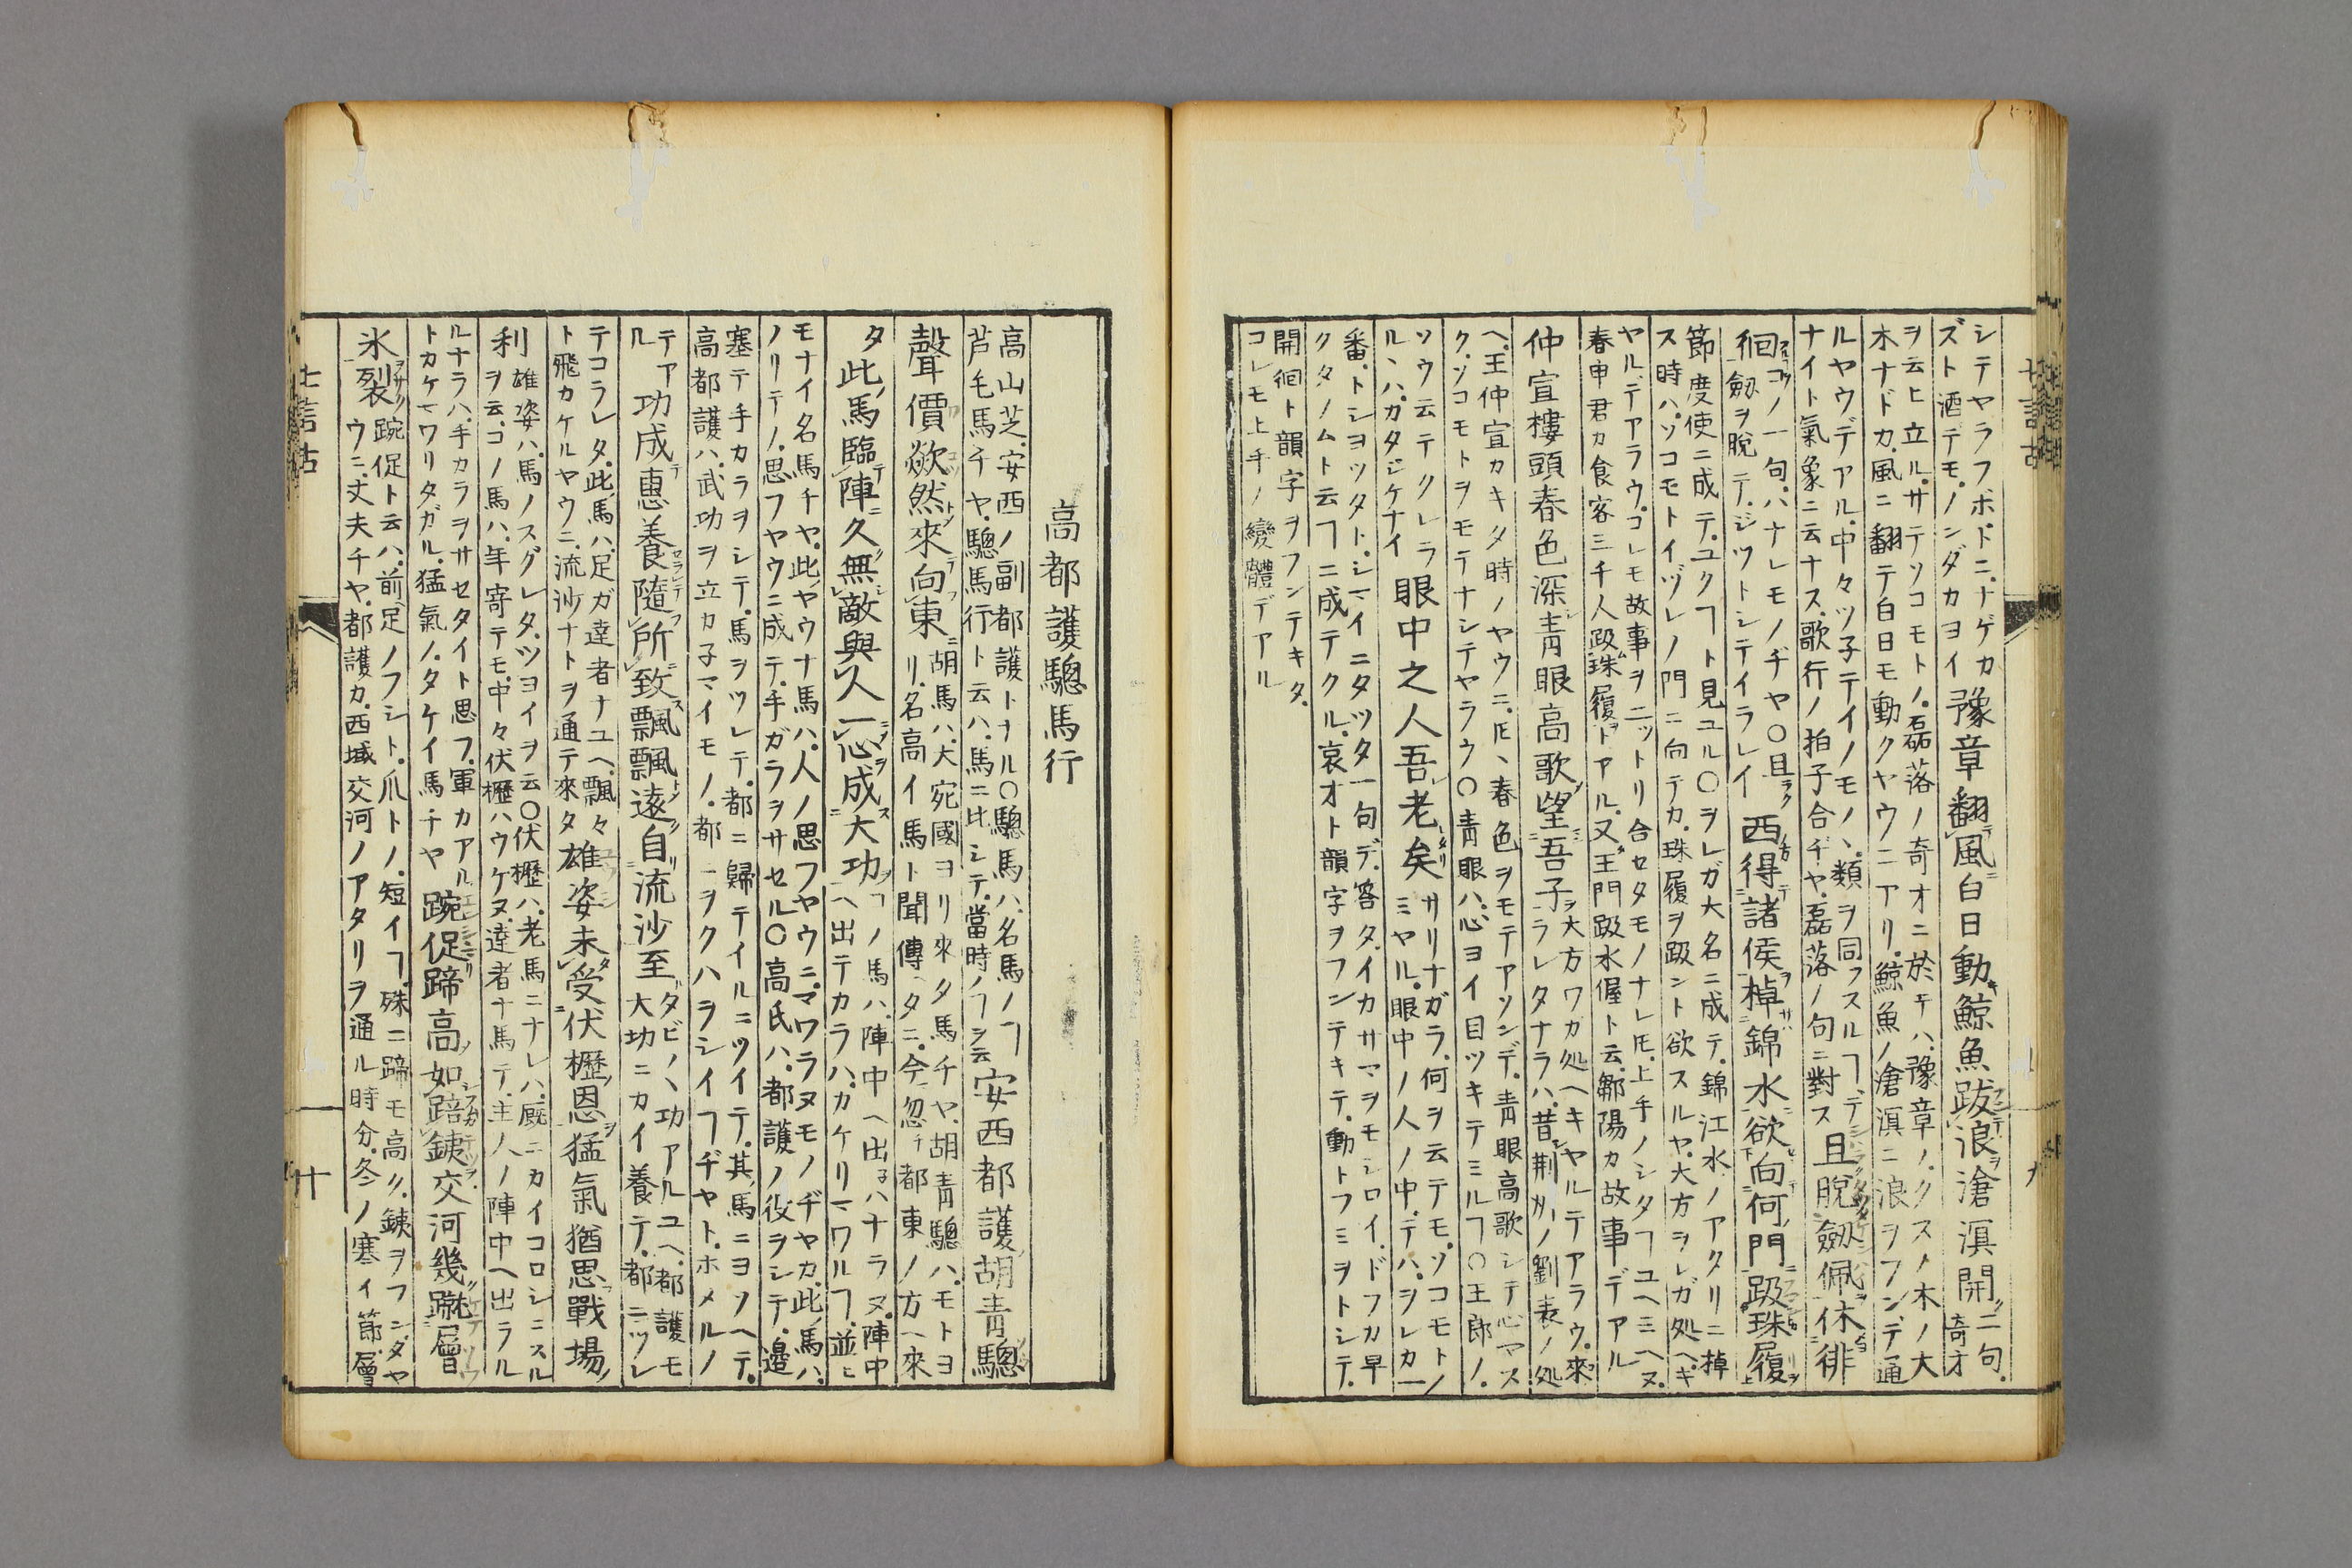 シテヤラフホドニ.ナゲカ
ズト酒デモ.ノンダカヨイ
豫章翻風白日動鯨魚跋浪滄溟開
二句.
奇才
ヲ云ヒ立ル.サテソコモトノ.磊落ノ奇才ニ於テハ.豫章ノ.クスノ木ノ大
木ナドカ.風ニ翻テ白日モ動クヤウニアリ.鯨魚ノ滄溟ニ浪ヲフンデ通
ルヤウデアル.中々ツ子テイノモノヽ.類ヲ同フスルヿデ
ナイト氣象ニ云ナス.歌行ノ拍子合ヂヤ.磊落ノ句ニ對ス
且脫劔佩休徘
徊
コノ一句.ハナレモノヂヤ〇且ラク
劔ヲ脫テ.ジツトシテイラレイ
西得諸侯棹錦水欲向何門趿珠履
節度使ニ成テ.ユクヿト見ユル〇ヲレガ大名ニ成テ.錦江水ノアタリニ棹
ス時ハ.ソコモトイヅレノ門ニ向テカ.珠履ヲ趿ント欲スルヤ.大方ヲレガ処ヘ.キ
ヤル.デアラウ.コレモ故事ヲニットリ合セタモノナレ𪜈.上手ノシタヿユヘミヘヌ.
春申君カ食客三千人趿珠履トアル.又王門趿水偓ト云.鄒陽カ故事デアル
仲宣樓頭春色深靑眼高歌望吾子
大方ワガ処ヘキヤルテアラウ.來
ラレタナラハ.昔荆州ノ劉表ノ処
ヘ.王仲宣カキタ時ノヤウニ.𪜈ヽ春色ヲモテアソンデ.靑眼高歌シテ心マス
ク.ソコモトヲモテナシテヤラウ〇靑眼ハ.心ヨイ目ツキテミルヿ〇王郎ノ.
ソウ云テクレラ
ルヽハ.カタジケナイ
眼中之人吾老矣
サリナガラ.何ヲ云テモ.ソコモトノ
ミヤル.眼中ノ人ノ中.テハ.ヲレカ一
番.トシヨツタト.シマイニタツタ一句デ.答タ.イカサマヲモシロイ.ドフカ早
クタノムト云ヿニ成テクル.哀才ト韻字ヲフンテキテ.動トフミヲトシテ.
開徊ト韻字ヲフンテキタ.
コレモ上手ノ變體デアル
高都護驄馬行
高山芝.安西ノ副都護トナル〇驄馬ハ.名馬ノヿ
芦毛馬チヤ.驄馬行ト云ハ.馬ニ比シテ.當時ノヿヲ云
安西都護胡靑驄
聲價欻然來向東
胡馬ハ.大宛國ヨリ來タ馬チヤ.胡靑驄ハ.モトヨ
リ.名高イ馬ト聞傳ヘタニ.今忽チ都東ノ方ヘ來
タ
此馬臨陣久無敵與人一心成大功
ヿノ馬ハ.陣中ヘ出子ハナラヌ.陣中
ヘ出テカラハ.カケリマワルヿ.並ヒ
モナイ名馬チヤ.此ヤウナ馬ハ.人ノ思フヤウニ.マワラヌモノヂヤカ.此馬ハ.
ノリテノ.思フヤウニ成テ.手ガラヲサセル〇高氏ハ.都護ノ役ヲシテ.邊
塞テ手カラヲシテ.馬ヲツレテ.都ニ歸テイルニツイテ.其馬ニヨソヘテ.
高都護ハ.武功ヲ立カ子マイモノ.都ニヲクハヲシイヿヂヤト.ホメルノ
テア
ル
功成惠養隨所致飄飄遠自流沙至
タビノヽ功アルユヘ.都護モ
大功ニカイ養テ.都ニツレ
テコラレタ.此馬ハ.足ガ達者ナユヘ.飄々
ト飛カケルヤウニ.流沙ナトヲ通テ來タ
雄姿未受伏櫪恩猛氣猶思戰場
利
雄姿ハ.馬ノスグレタ.ツヨイヲ云〇伏櫪ハ.老馬ニナレハ.厩ニカイコロシニスル
ヲ云.コノ馬ハ.年寄テモ.中々伏櫪ハウケヌ.達者ナ馬テ.主人ノ陣中ヘ出ラル
ルナラハ.手カラヲサセタイト思フ.軍カアル
トカケマワリタガル.猛氣ノ.タケイ馬チヤ
踠促蹄高如踣鐵交河幾蹴層
氷裂
踠促ト云ハ.前足ノフシト.爪トノ.短イヿ.殊ニ蹄モ高ク.鐵ヲフンダヤ
ウニ.丈夫チヤ.都護カ.西域交河ノアタリヲ通ル時分.冬ノ寒イ節.層
七言古
十